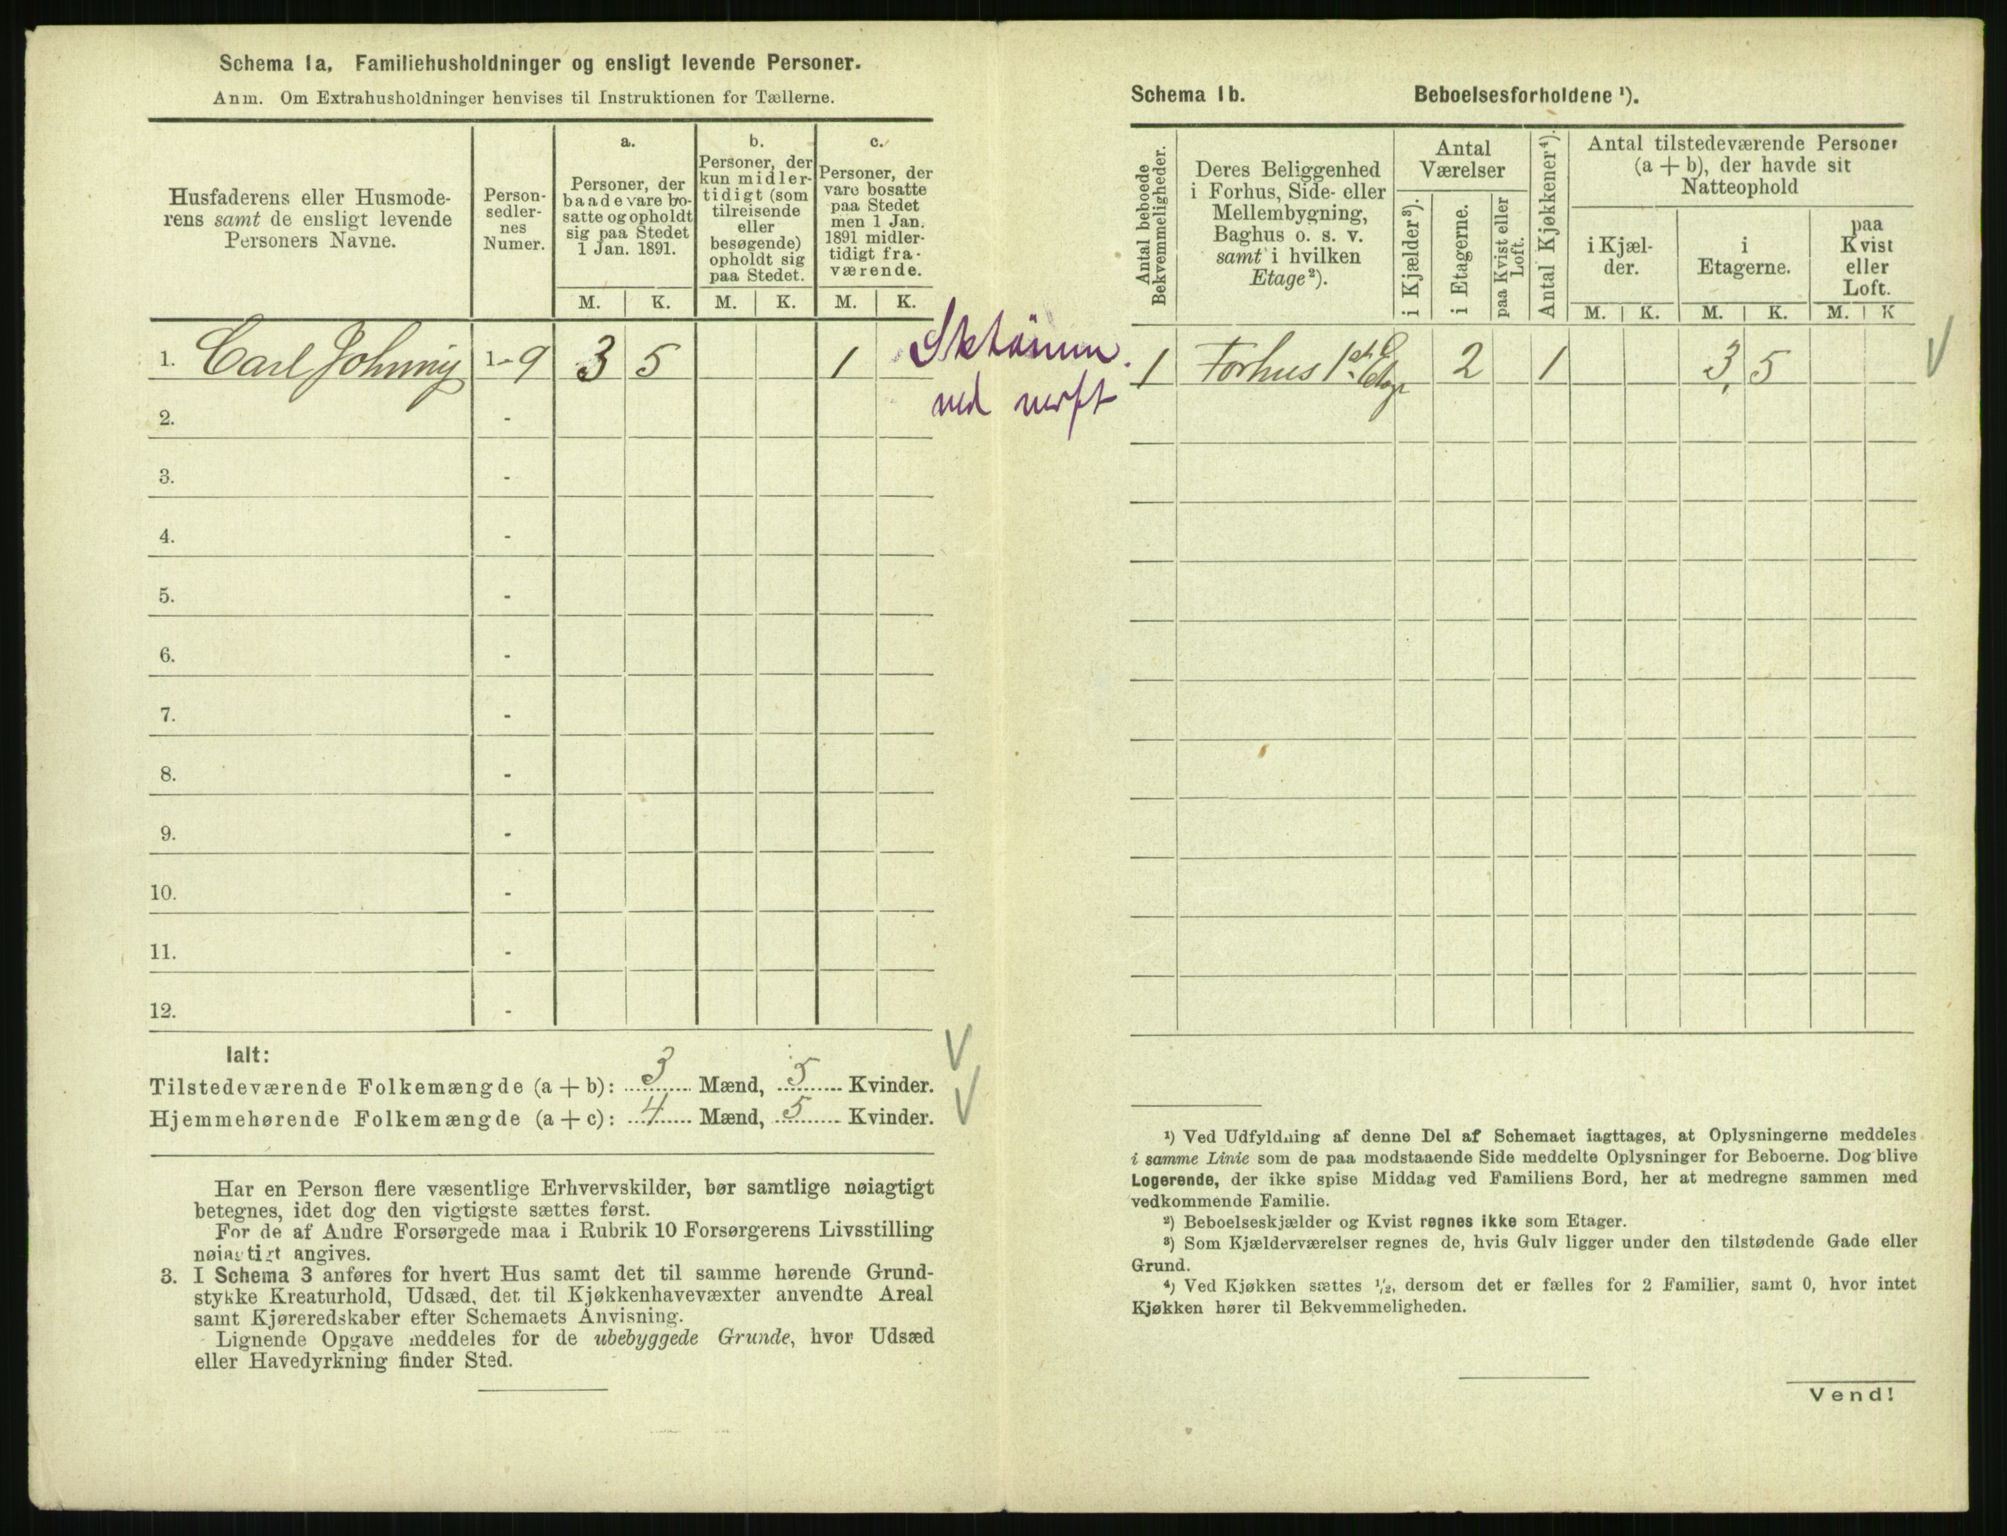 Schema 1a, Familiehusholdninger og ensligt levende Personer.
Anm. Om Extrahusholdninger henvises til Instruktionen for Tællerne.
Husfaderens eller Husmode-
rens samt de ensligt levende
Personers Navne.
Person-
sedler-
nes
Numer.
a.
Personer, der
baade vare bo-
satte og opholdt
sig paa Stedet
1 Jan. 1891.
b.
Personer, der
kun midler-
tidigt (som
tilreisende
eller
besøgende)
opholdt sig
paa Stedet.
c.
Personer, der
vare bosatte
paa Stedet
men 1 Jan.
1891 midler-
tidigt fra-
værende.
M. K. M. K. M. K.
1. Carl Johnny 1-9 3 5 1
2. -
3. -
4. -
5. -
6. -
7. -
8. -
9. -
10. -
11. -
12. -
Ialt:
Tilstedeværende Folkemængde (a + b): 3 Mænd, 5 Kvinder.
Hjemmehørende Folkemængde (a + c): 4 Mænd, 5 Kvinder.
Har en Person flere væsentlige Erhvervskilder, bør samtlige nøiagtigt
betegnes, idet dog den vigtigste sættes først.
For de af Andre Forsørgede maa i Rubrik 10 Forsørgerens Livsstilling
nøiagtigt angives.
3. I Schema 3 anføres for hvert Hus samt det til samme hørende Grund-
stykke Kreaturhold, Udsæd, det til Kjøkkenhavevæxter anvendte Areal
samt Kjøreredskaber efter Schemaets Anvisning.
Lignende Opgave meddeles for de ubebyggede Grunde, hvor Udsæd
eller Havedyrkning finder Sted.
Schema 1b. Beboelsesforholdene ¹).
Antal beboede
Bekvemmeligheder.
Deres Beliggenhed
i Forhus, Side- eller
Mellembygning,
Baghus o. s. v.
samt i hvilken
Etage²).
Antal
Værelser
i Kjælder³).
i Etagerne.
paa Kvist eller
Loft.
Antal Kjøkkener⁴).
Antal tilstedeværende Personer
(a + b), der havde sit
Natteophold
i Kjæl-
der.
i
Etagerne.
paa
Kvist
eller
Loft.
M. K. M. K. M. K
1 Forhus 1ste Etage 2 1 3 5
¹) Ved Udfyldning af denne Del af Schemaet iagttages, at Oplysningerne meddeles
i samme Linie som de paa modstaaende Side meddelte Oplysninger for Beboerne. Dog blive
Logerende, der ikke spise Middag ved Familiens Bord, her at medregne sammen med
vedkommende Familie.
²) Beboelseskjælder og Kvist regnes ikke som Etager.
³) Som Kjælderværelser regnes de, hvis Gulv ligger under den tilstødende Gade eller
Grund.
⁴) Ved Kjøkken sættes ¹/₂, dersom det er fælles for 2 Familier, samt 0, hvor intet
Kjøkken hører til Bekvemmeligheden.
Vend!